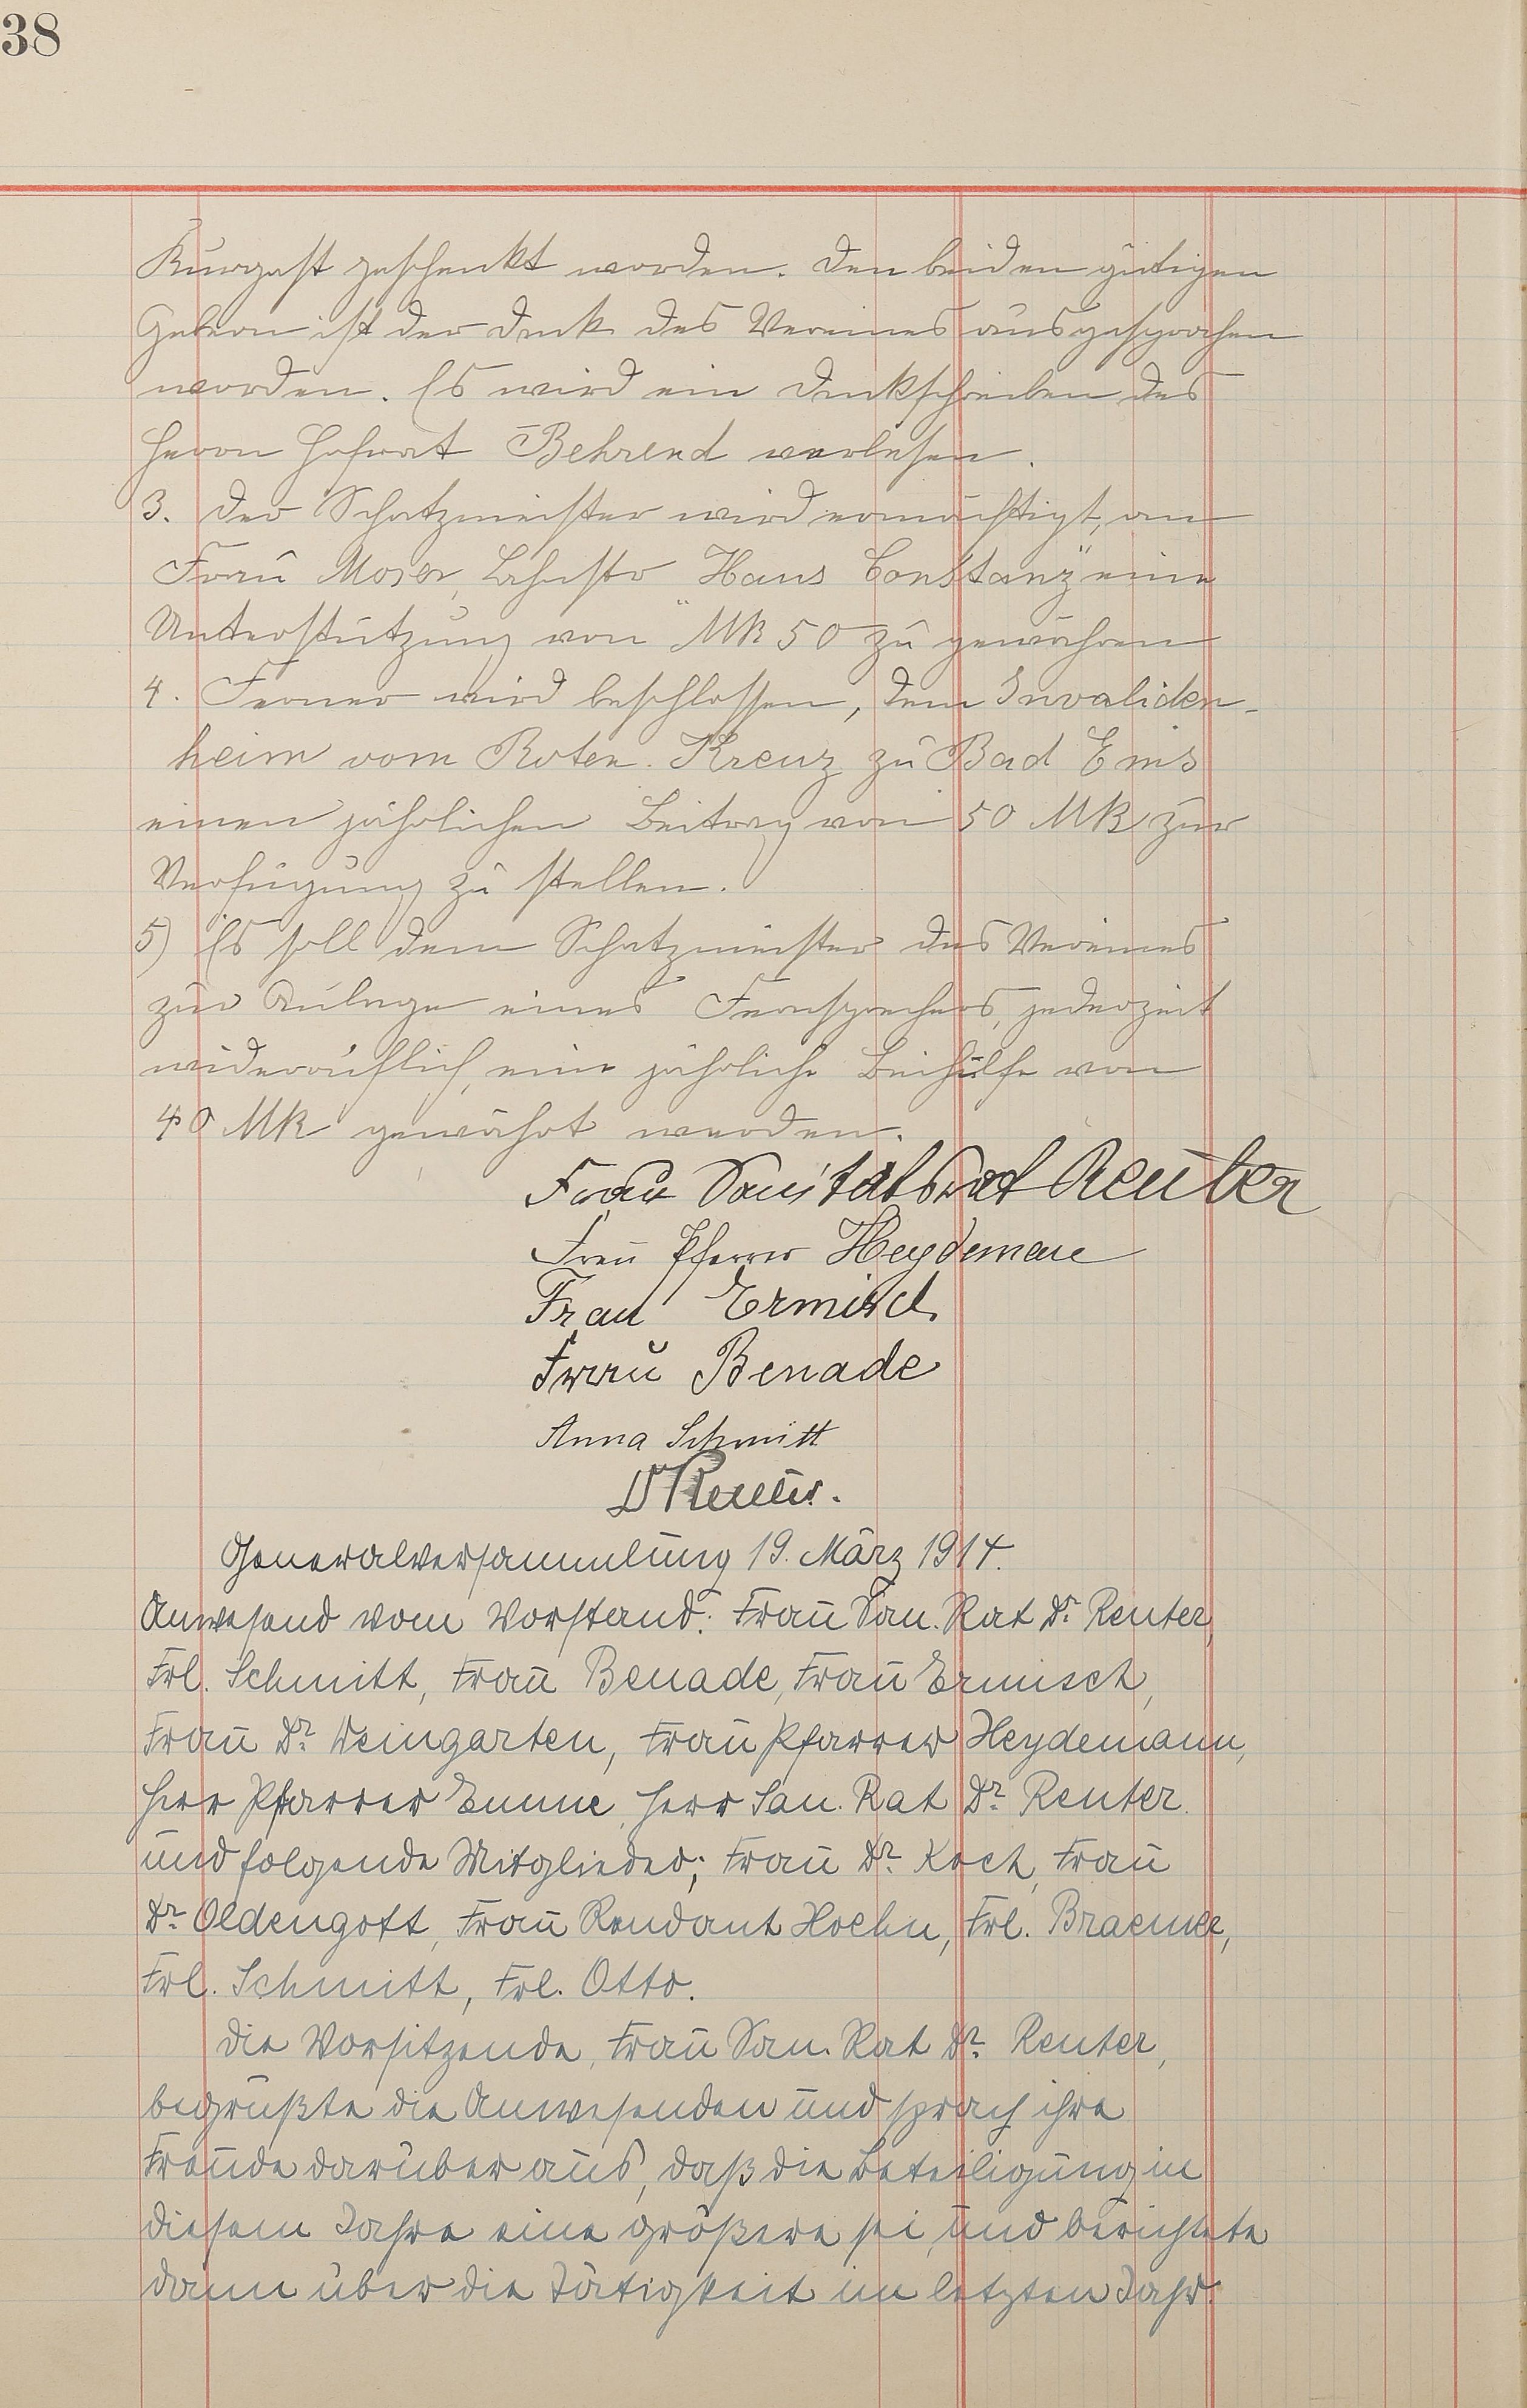 38
Kurgast geschenkt worden. Den beiden gütigen
Gebern ist der Dank des Vereines ausgesprochen
worden. Es wird ein Dankschreiben des
Herrn Hofrat Behrend verlesen.
3. Der Schatzmeister wird ermächtigt, an
Frau Moser, Lahnstr „Haus Constanz" eine
Unterstützung von Mk 50 zu gewähren
4. Ferner wird beschlossen, dem Invaliden-
heim vom Roten Kreuz zu Bad Ems
einen jährlichen Beitrag von 50 Mk zur
Verfügung zu stellen.
5) Es soll dem Schatzmeister des Vereines
zur Anlage eines Fernsprechers, jederzeit
widerruflich, eine jährliche Beihülfe von
40 Mk gewährt werden.
Frau Sanitätsrat Reuter
Frau Pfarrer Heydemann
Frau Ermisch
Frau Benade
Anna Schmitt
Dr Reuter.
Generalversammlung 19. März 1914.
Anwesend vom Vorstand: Frau San. Rat Dr. Reuter,
Frl. Schmitt, Frau Benade, Frau Ermisch,
Frau Dr. Weingarten, Frau Pfarrer Heydemann,
Herr Pfarrer Emme, Herr San. Rat Dr. Reuter
und folgende Mitglieder; Frau Dr. Koch, Frau
Dr. Oldengott, Frau Rendant Hoehn, Frl.
Frl. Schmitt, Frl. Otto.
Die Vorsitzende, Frau San. Rat Dr. Reuter,
begrüßte die Anwesenden und sprach ihre
Freude darüber aus, daß die Beteiligung in
diesem Jahre eine größere sei und berichtete
dann über die Tätigkeit im letzten Jahr.